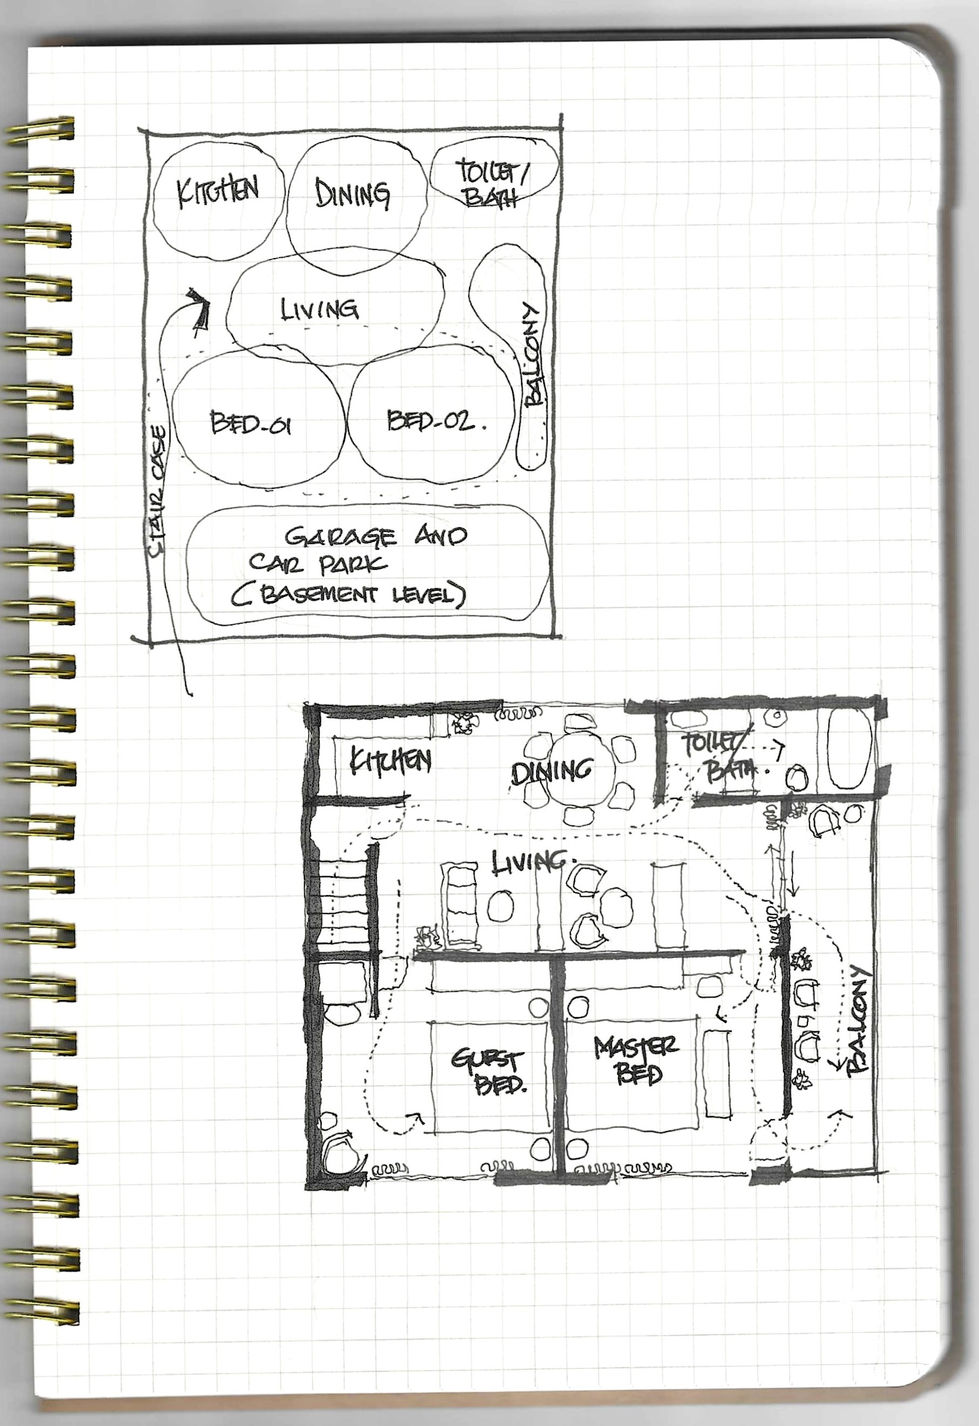 KITCHEN
DINING
TOILET/
BATH
LIVING
BALCONY
BED-01
BED-02.
STAIR CASE
GARAGE AND
CAR PARK
(BASEMENT LEVEL)
KITCHEN
DINING
TOILET/
BATH.
LIVING.
GUEST
BED.
MASTER
BED
BALCONY